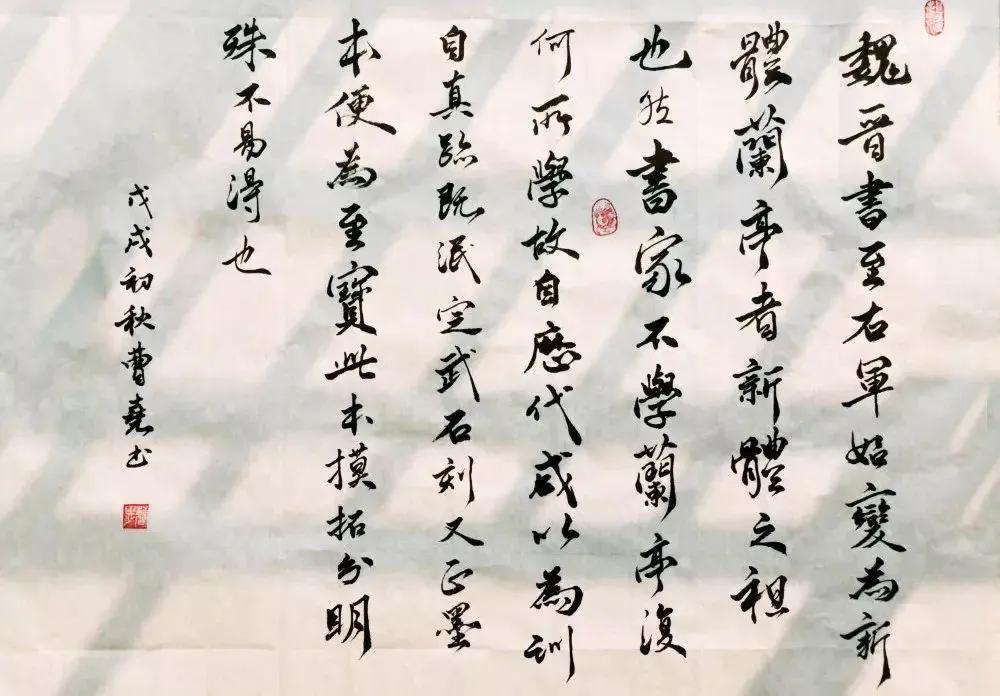 魏晉書至右軍始變為新
體蘭亭者新體之祖
也然書家不學蘭亭復
何所學故自歷代咸以為訓
自真跡既泯定武石刻又正墨
本便為至寶此本摸拓分明
殊不易得也
戊戌初秋曹堯书